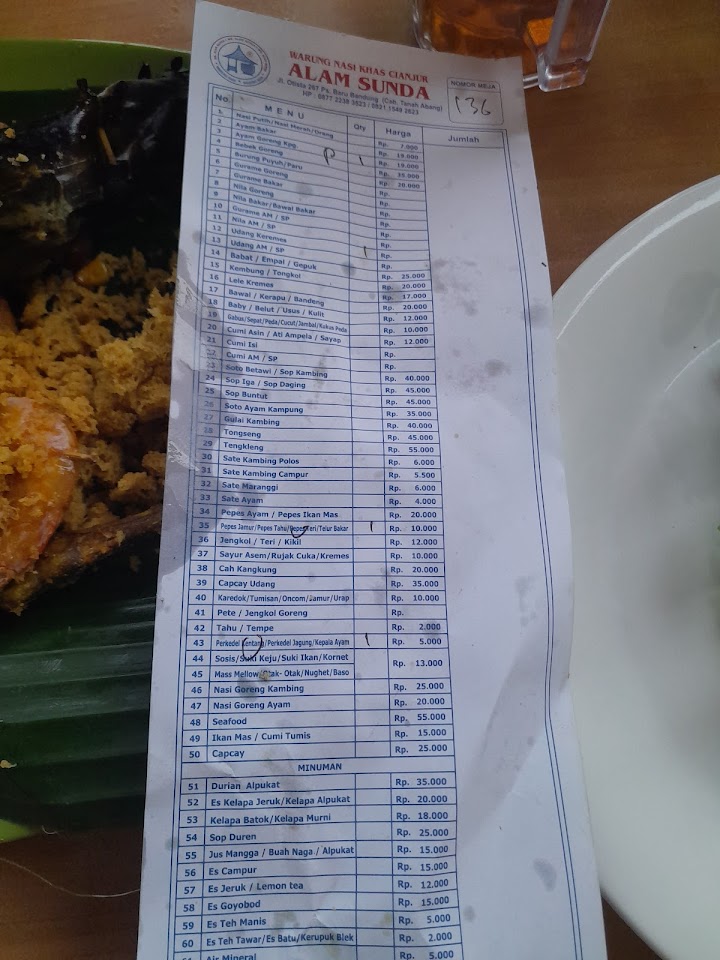 WARUNG NASI KHAS CIANJUR
ALAM SUNDA
Jl. Otista 267 Ps. Baru Bandung (Cab. Tanah Abang)
NOMOR MEJA
136
No. MENU Qty Harga Jumlah
1 Nasi Putih/Nasi Merah/Oreng Rp. 7.000
2 Ayam Bakar Rp. 19.000
3 Ayam Goreng Kpg P 1 Rp. 19.000
4 Bebek Goreng Rp. 35.000
5 Burung Puyuh/Paru Rp. 20.000
6 Gurame Goreng Rp.
7 Gurame Bakar Rp.
8 Nila Goreng Rp.
9 Nila Bakar/Bawal Bakar Rp.
10 Gurame AM / SP Rp.
11 Nila AM / SP Rp.
12 Udang Keremes 1 Rp.
13 Udang AM / SP Rp.
14 Babat / Empal / Gepuk Rp. 25.000
15 Kembung / Tongkol Rp. 20.000
16 Lele Kremes Rp. 17.000
17 Bawal / Kerapu / Bandeng Rp. 20.000
18 Baby / Belut / Usus / Kulit Rp. 12.000
19 Gabus/Sepat/Peda/Cucut/Jambal/Kukus Peda Rp. 10.000
20 Cumi Asin / Ati Ampela / Sayap Rp. 12.000
21 Cumi Isi Rp.
22 Cumi AM / SP Rp.
23 Soto Betawi / Sop Kambing Rp. 40.000
24 Sop Iga / Sop Daging Rp. 45.000
25 Sop Buntut Rp. 45.000
26 Soto Ayam Kampung Rp. 35.000
27 Gulai Kambing Rp. 40.000
28 Tongseng Rp. 45.000
29 Tengkleng Rp. 55.000
30 Sate Kambing Polos Rp. 6.000
31 Sate Kambing Campur Rp. 5.500
32 Sate Maranggi Rp. 6.000
33 Sate Ayam Rp. 4.000
34 Pepes Ayam / Pepes Ikan Mas Rp. 20.000
35 Pepes Jamur/Pepes Tahu/Pepes Teri/Telur Bakar 1 Rp. 10.000
36 Jengkol / Teri / Kikil Rp. 12.000
37 Sayur Asem/Rujak Cuka/Kremes Rp. 10.000
38 Cah Kangkung Rp. 20.000
39 Capcay Udang Rp. 35.000
40 Karedok/Tumisan/Oncom/Jamur/Urap Rp. 10.000
41 Pete / Jengkol Goreng Rp.
42 Tahu / Tempe Rp. 2.000
43 Perkedel Kentang/Perkedel Jagung/Kepala Ayam 1 Rp. 5.000
44 Sosis/Suki Keju/Suki Ikan/Kornet Rp. 13.000
45 Mass Mellow/Otak- Otak/Nughet/Baso
46 Nasi Goreng Kambing Rp. 25.000
47 Nasi Goreng Ayam Rp. 20.000
48 Seafood Rp. 55.000
49 Ikan Mas / Cumi Tumis Rp. 15.000
50 Capcay Rp. 25.000
MINUMAN
51 Durian Alpukat Rp. 35.000
52 Es Kelapa Jeruk/Kelapa Alpukat Rp. 20.000
53 Kelapa Batok/Kelapa Murni Rp. 18.000
54 Sop Duren Rp. 25.000
55 Jus Mangga / Buah Naga / Alpukat Rp. 15.000
56 Es Campur Rp. 15.000
57 Es Jeruk / Lemon tea Rp. 12.000
58 Es Goyobod Rp. 15.000
59 Es Teh Manis Rp. 5.000
60 Es Teh Tawar/Es Batu/Kerupuk Blek Rp. 2.000
61 Air Mineral Rp. 5.000